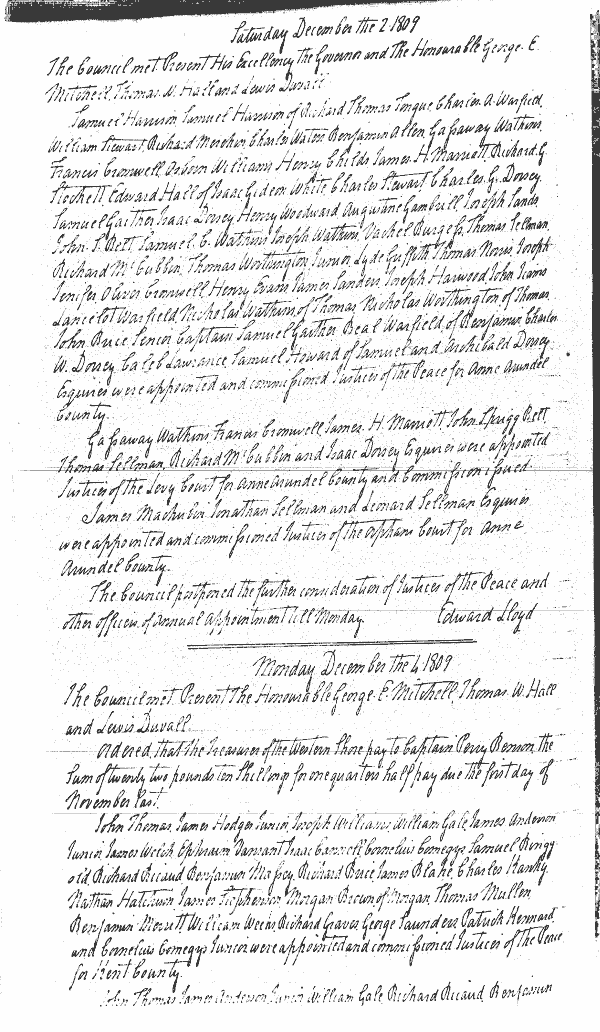 Saturday December the 2 1809
The Council met Present His Excellency the Governor and The Honourable George E
Mitchell, Thomas W. Hall and Lewis Duvall
Samuel Harrison Samuel Harrison of Richard Thomas Tongue Charles A. Warfield
William Stewart, Richard Merekin Charles Waters Benjamin Allen Gassaway Watkins,
Francis Cromwell, Osborn Williams Henry Childs James H. Marriott, Richard G
Stockett Edward Hall of Isaac Gideon White Charles Stewart Charles G. Dorsey,
Samuel Gaither Isaac Dorsey Henry Woodward Augustine Gambrill, Joseph Sands,
John S. Belt Samuel C. Watkins Joseph Watkins, Vachel Burgess, Thomas Sellman,
Richard McCubbin, Thomas Worthington Junior, Lyde Griffith Thomas Norris Joseph
Jenifer Oliver Cromwell, Henry Evans James Sanders Joseph Harwood John Iiams
Lancelot Warfield, Nicholas Watkins of Thomas, Nicholas Worthington of Thomas,
John Brice Senior Captain Samuel Gaither Beal Warfield of Benjamin Charles
W. Dorsey Caleb Lawrance, Samuel Howard of Samuel and Archibald Dorsey
Esquires were appointed and commissioned Justices of the Peace for Anne Arundel
County.
Gassaway Watkins, Francis Cromwell, James H. Marriott, John Sprigg Belt
Thomas Sellman, Richard McCubbin and Isaac Dorsey Esquires were appointed
Justices of the Levy Court for Anne Arundel County and Commission issued.
James Mackubin Jonathan Sellman and Leonard Sellman Esquires
were appointed and commissioned Justices of the orphans Court for Anne
Arundel County.
The Council postponed the further consideration of Justices of the Peace and
other officers of annual appointment till Monday. Edward Lloyd
Monday December the 4 1809
The Council met. Present The Honourable George E Mitchell, Thomas W. Hall
and Lewis Duvall.
Ordered, that the Treasurer of the Western Shore pay to Captain Perry Benson, the
sum of twenty two pounds ten shillings for one quarters half pay due the first day of
November last.
John Thomas, James Hodges Junior, Joseph Williams, William Gale James Anderson
Junior James Welsh Ephraim Vansant Isaac Cannell Cornelius Comegys Samuel Ringg
old Richard Ricaud Benjamin Massey, Richard Brice James Blake, Charles Hankey
Nathan Hatcheson James Stephenson Morgan Brown of Morgan, Thomas Mullen,
Benjamin Merritt William Weeks, Richard Graves George Saunders Patrick Kennard
and Cornelius Comegys Junior were appointed and commissioned Justices of the Peace
for Kent County.
John Thomas James Anderson Junior William Gale, Richard Ricaud Benjamin